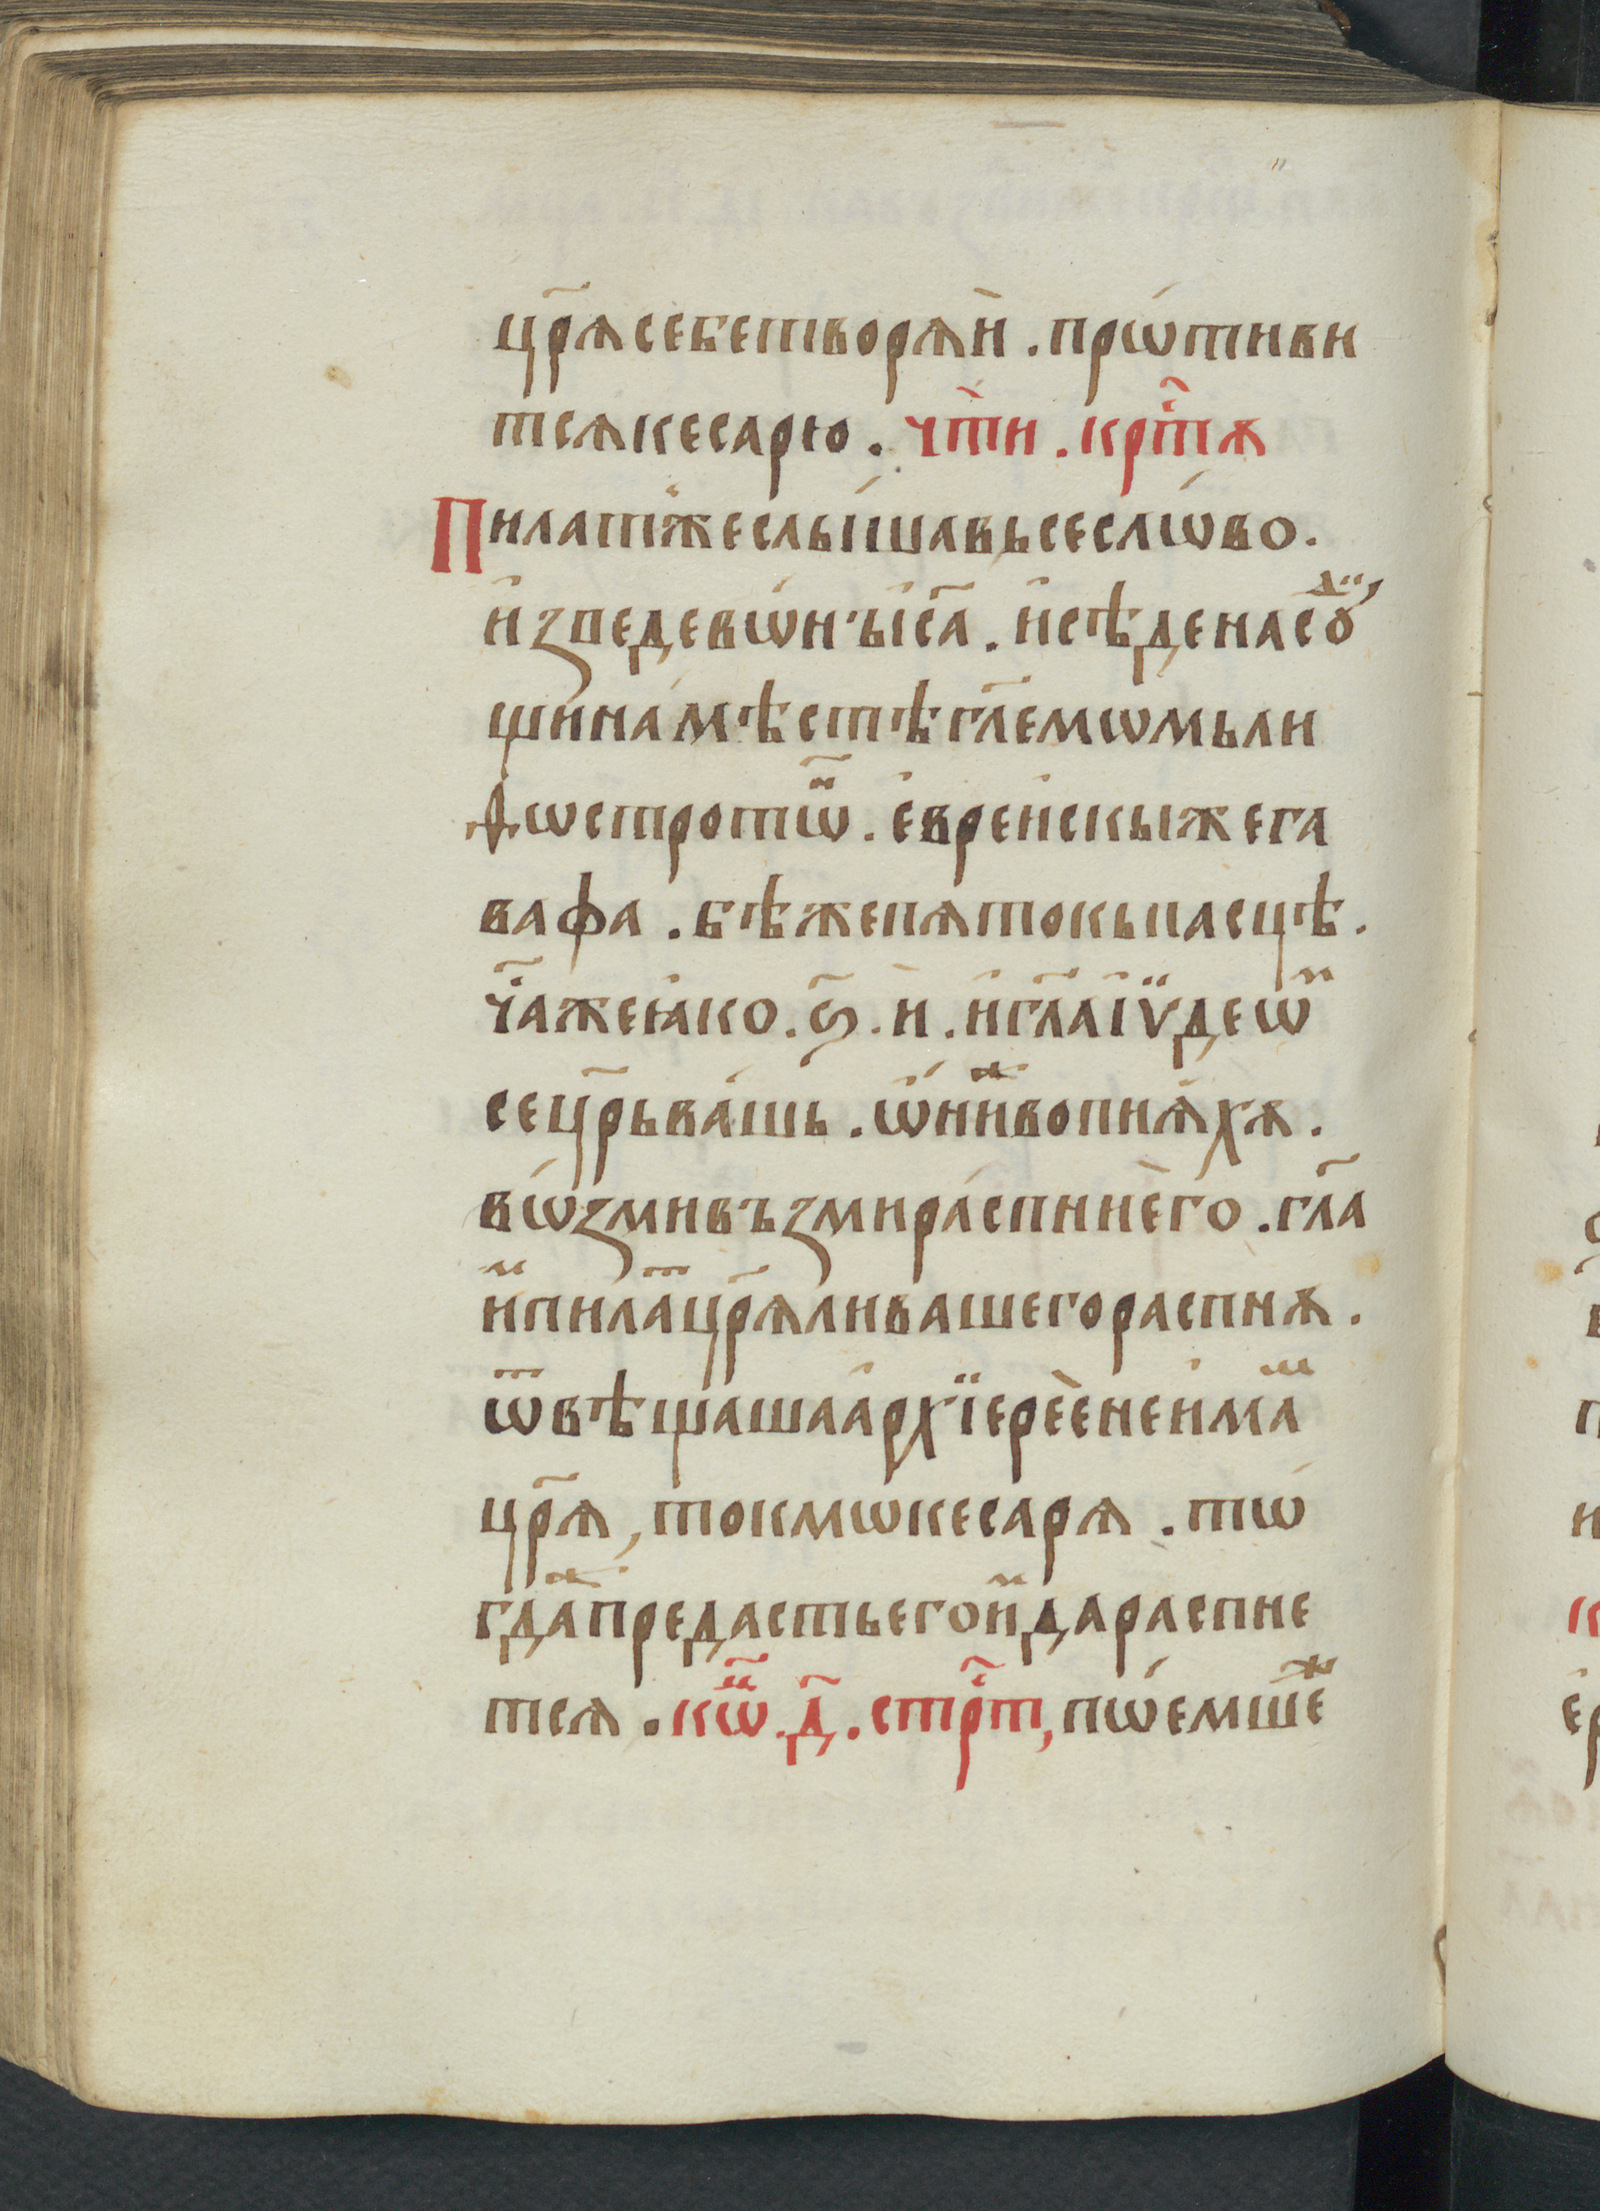 цр҃ѧ себе творѧ̀й . прѡ́тиви
тсѧ кесарю . чт҃и . крⷭ҇тѫ
Пилат же слы́шавь се слѡ́во .
и҆зпедевѡ́нъ і҆с҃а . и҆сѣде на сꙋⷣ
щи на́ мѣстѣ гл҃емѡмь ли
ѳѡстротѡⷩ҇ . е҆вреи҆скы же га
вафа . бѣ же пѧтокь пасцѣ .
чⷭ҇а же ꙗ҆ко . ѕ҃ . й . и҆ гл҃а і҆ѵдеѡⷨ
се цр҃ь ва́шь . ѡ҆ни́ⷤ вопиѧ҆хѫ .
вѡ́зми възми ра́спни є҆̀го . гл҃а
и҆ⷨ пила́ⷮ цр҃ѧ ли вашего распнѫ .
ѿвѣщаша а҆рхїерѐе не и҆ма́ⷨ
цр҃ѧ, токмѡ кесарѧ . тѡ
гда́ⷤ предасть его и҆ⷨ да распне
тсѧ . кѡⷩ҇ . д҃ . стрⷭ҇т, пѡ́емшеⷤ